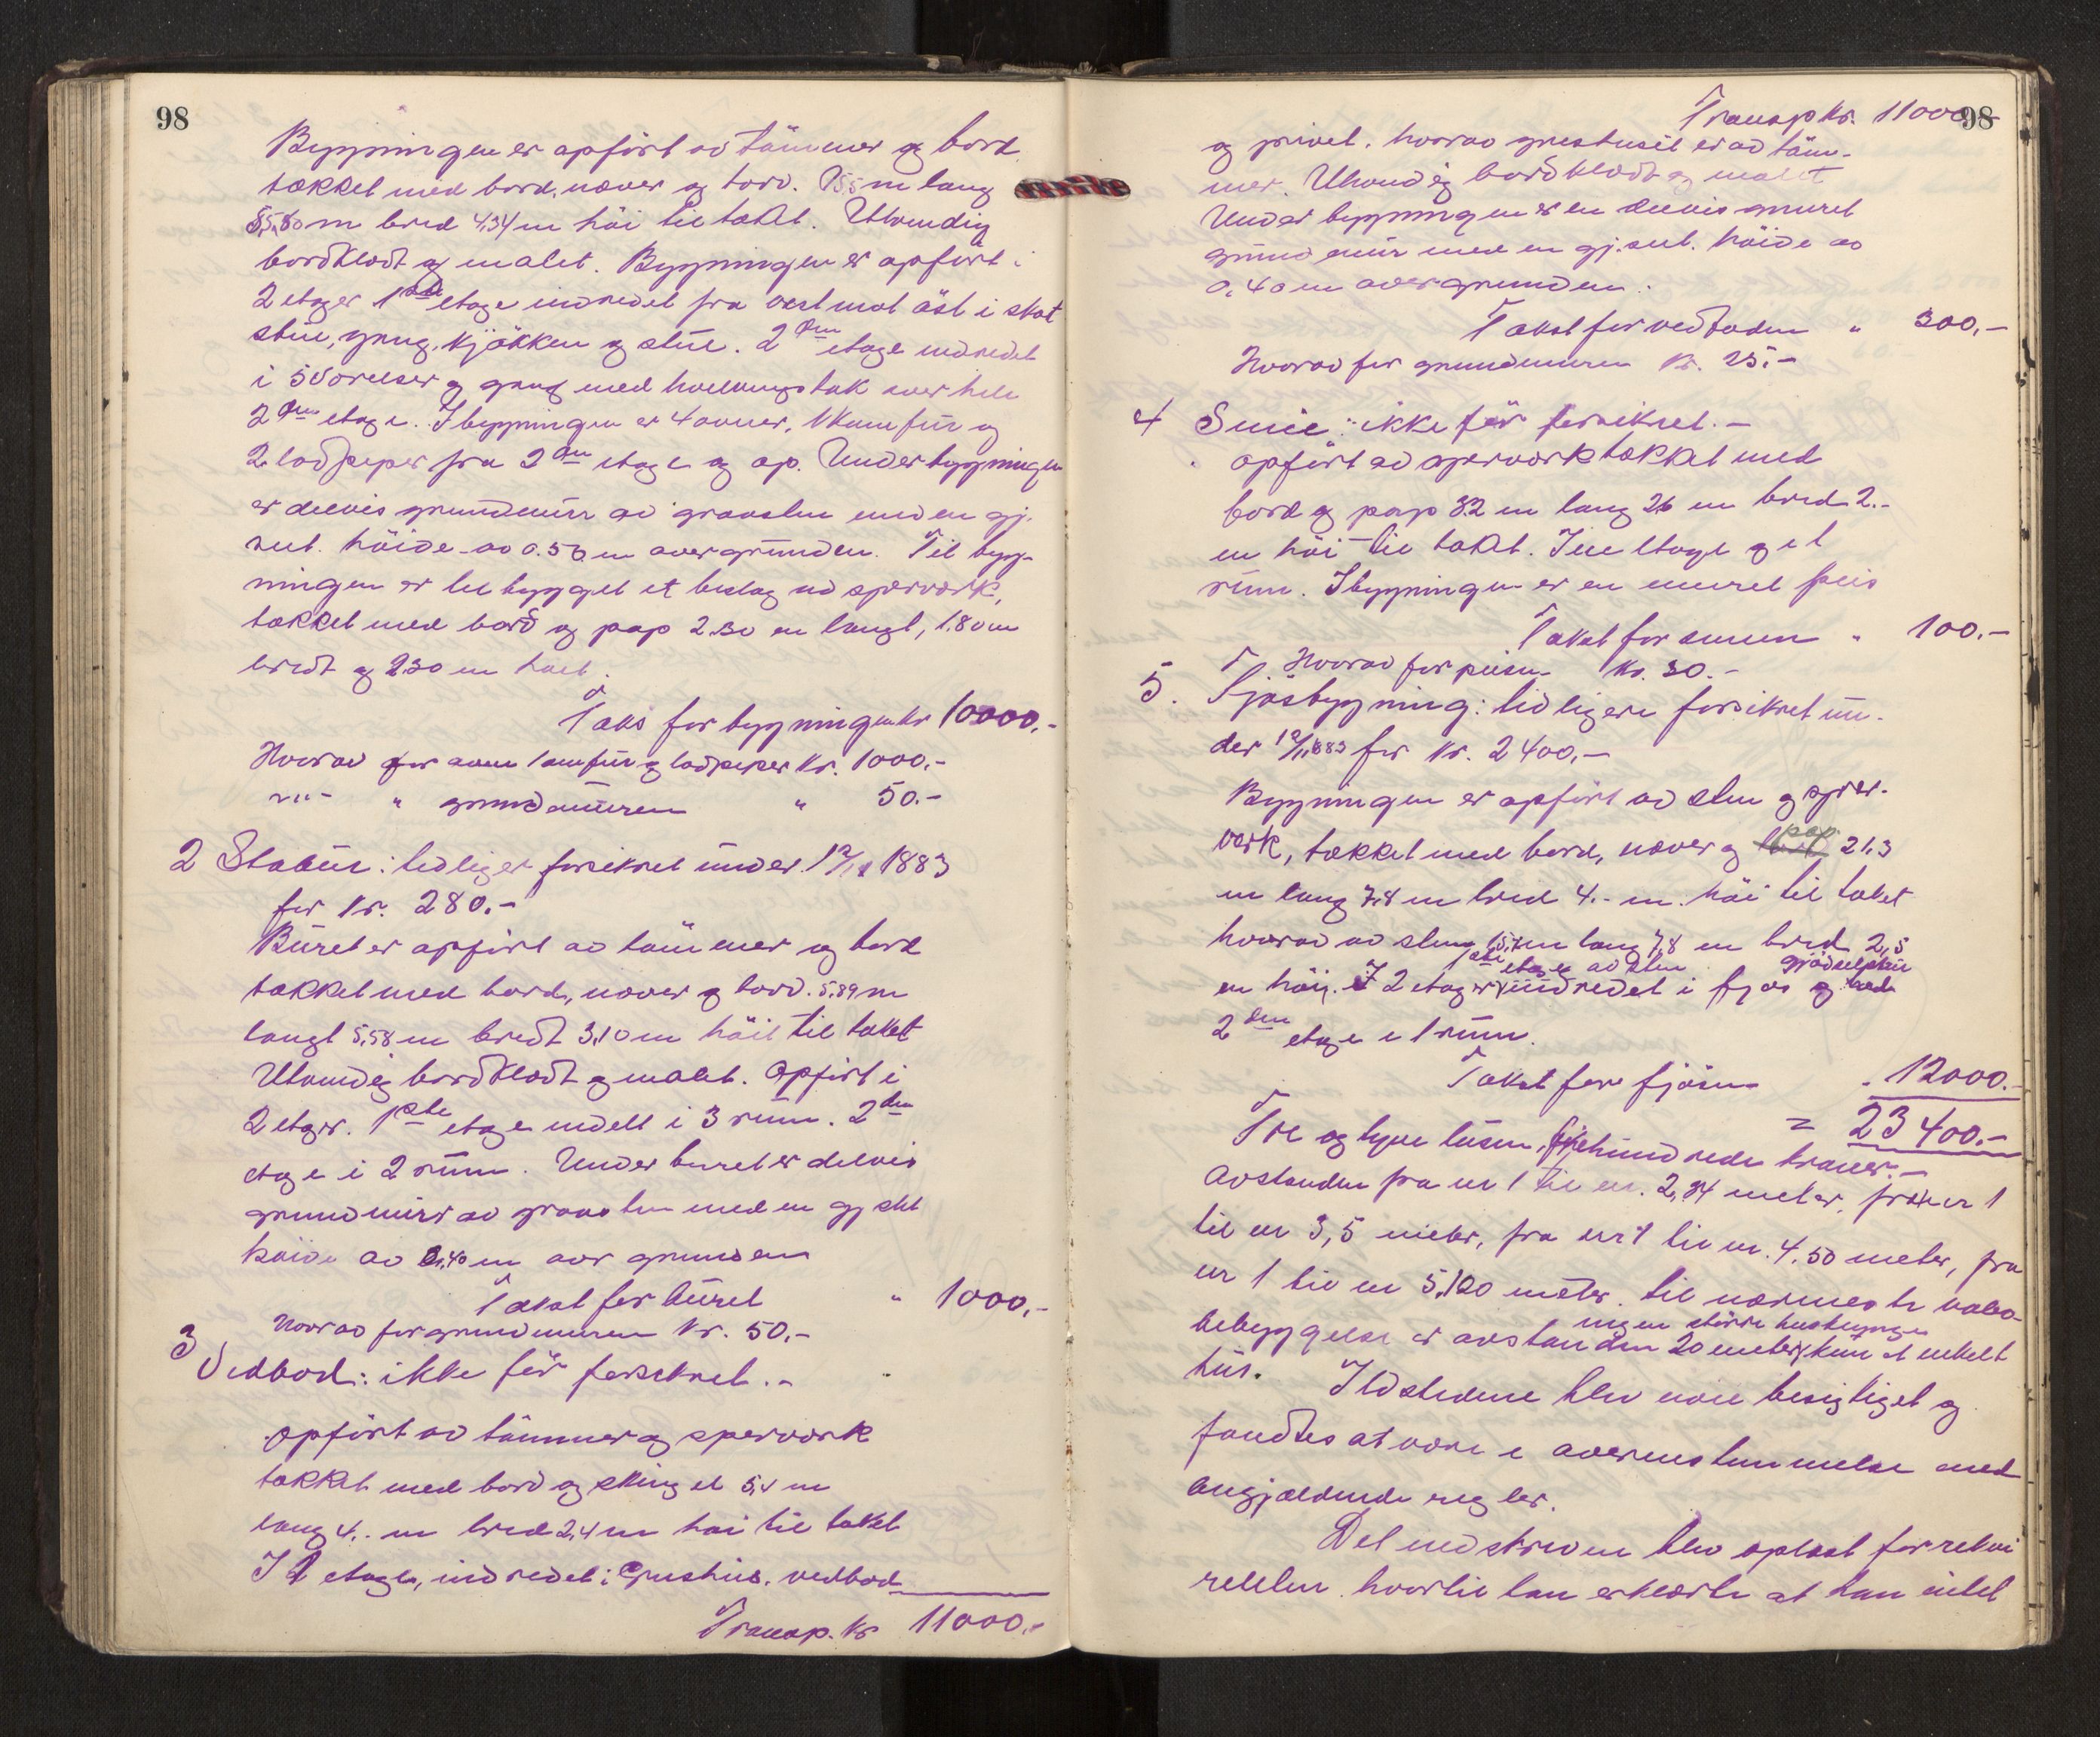 98
Bygningen er opført av tømmer og bord
tækket med bord, næver og torv. 15,5 m lang
5,60 m bred 4,34 m høi til taket. Utvendig
bordklædt og malet. Bygningen er opført i
2 etager 1ste etage indredet fra vest mot øst i skot
stue, gang, kjøkken og stue. 2den etage indredet
i 5 værelser og gang med hvelvingstak over hele
2den etage. I bygningen er 4 ovner, 1 komfur og
2 lodpiper fra 2den etage og op. Under bygningen
er delvis grundmur av graasten med en gj.
snit. høide av 0.50 m over grunden. Til byg-
ningen er tilbygget et bislag av sperværk,
tækket med bord og pap 2.30 m langt, 1.80 m
bredt og 2.30 m høit.
Takst for bygningen kr 10000.-
Hvorav for ovne komfur og lodpiper kr. 1000.-
-"- " grundmuren " 50.-
2 Stabur: tidliger forsikret under 12/11 1883
for kr. 280.-
Buret er opført av tømmer og bord
tækket med bord, næver og torv. 5,89 m
langt 5,58 m bredt 3,10 m høit til taket
Utvendig bordklædt og malet. Opført i
2 etager. 1ste etage indelt i 3 rum. 2den
etage i 2 rum. Under buret er delvis
grundmur av graasten med en gj snit
høide av 0,40 m over grunden
Takst for buret " 1000,-
Hvorav for grundmuren kr. 50,-
3 Vedbod: ikke før forsikret.-
Opført av tømmer og sperværk
tækket med bord og shingel 5,4 m
lang 4,- m bred 2,4 m høi til taket
I 1 etage, indredet i grushus, vedbod
Transp. kr 11000.-
Transp kr. 11000.-
98
og privet, hvorav grushuset er av tøm-
mer. Utvendig bordklædt og malet
Under bygningen er en delvis muret
grundmur med en gj.snit. høide av
0,40 m over grunden.
Takst for vedboden " 300,-
Hvorav for grundmuren kr. 25.-
4 Smie: ikke før forsikret.-
opført av sperværk tækket med
bord og pap 3.2 m lang 2.6 m bred 2.-
m høi til taket. I en etage og et
rum. I bygningen er en muret peis
Takst for smien " 100.-
Hvorav for peisen kr. 30.-
5. Fjøsbygning: tidligere forsikret un-
der 12/11 1883 for kr. 2400,-
Bygningen er opført av sten og sper-
værk, tækket med bord, næver og pap 21.3
m lang 7,8 m bred 4.- m. høi til taket
hvorav av sten 15, m lang 7,8 m bred 2,5
1ste etage av sten gjødselskur
m høi. I 2 etager indredet i fjøs og
2den etage i 1 rum.
Takst for fjøsen " 12000.-
= 23400.-
Tre og tyve tusen, firehundrede kroner.-
Avstanden fra nr 1 til nr. 2, 24 meter, fra nr 1
til nr 3, 5 meter, fra nr 1 til nr. 4. 50 meter, fra
nr 1 til nr 5, 120 meter. til nærmeste nabo-
ingen større husklynge
bebyggelse er avstanden 20 meter, kun et enkelt
hus. Ildstedene blev nøie besigtiget og
fandtes at være i overensstemmelse med
angjældende regler.
Det indskrevne blev oplæst for rekvi
renten hvortil han erklærte at han intet